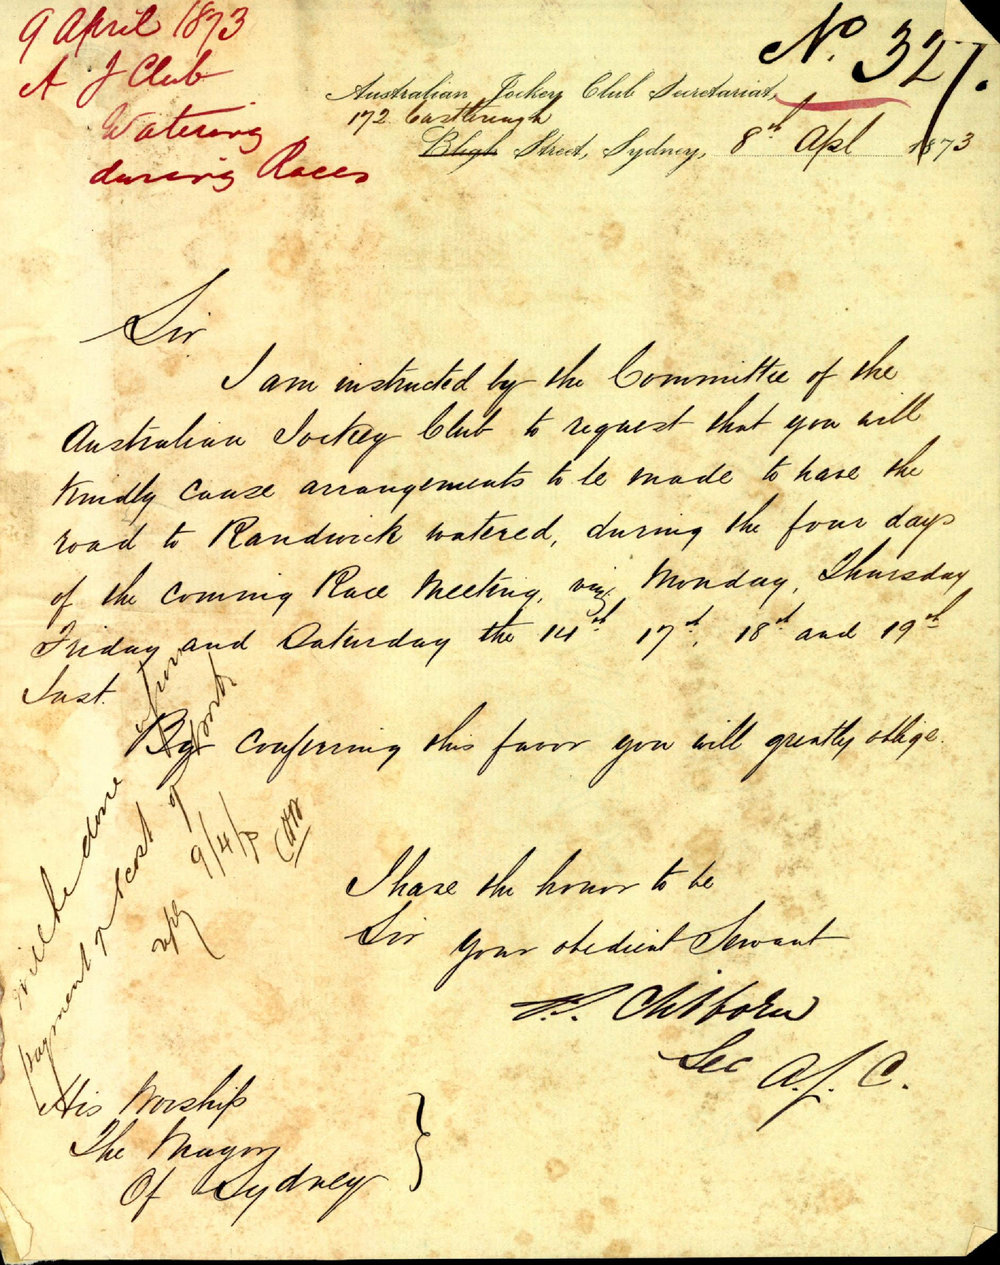 9 April 1873
A J Club
Watering
during Races
No. 327.
Australian Jockey Club Secretariat,
172 Castlereagh
Bligh Street, Sydney, 8th Apl 1873
Sir
I am instructed by the Committee of the
Australian Jockey Club to request that you will
kindly cause arrangements to be made to have the
road to Randwick watered, during the four days
of the coming Race Meeting, viz, Monday, Thursday
Friday and Saturday the 14th, 17th, 18th and 19th
Inst.
By conferring this favor you will greatly oblige.
I have the honor to be
Sir your obedient Servant
Chisholm
Sec A.J.C.
will be done upon
payment of cost of
9/4/73
His Worship
The Mayor
Of Sydney